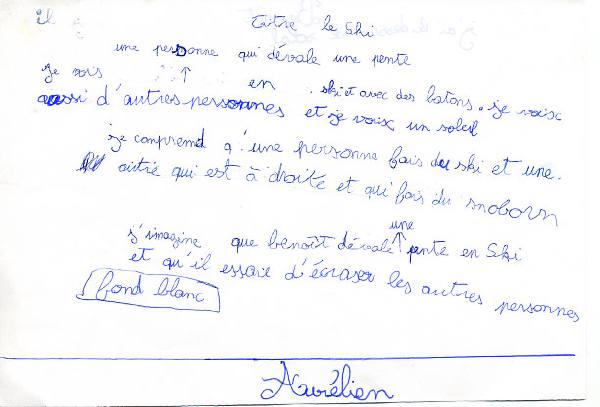 il
Taitre le Ski
une personne qui dévale une pente
je vois ↑ en ski et avec des batons. je voix
aussi d'autres personnes et je voix un soleil
je comprend q'une personne fais du ski et une
autre qui est à droite et qui fais du snoborn
une
j'imagine que benoît dévale ↑ pente en Ski
et qu'il essaie d'écraser les autres personnes
fond blanc
Aurélien